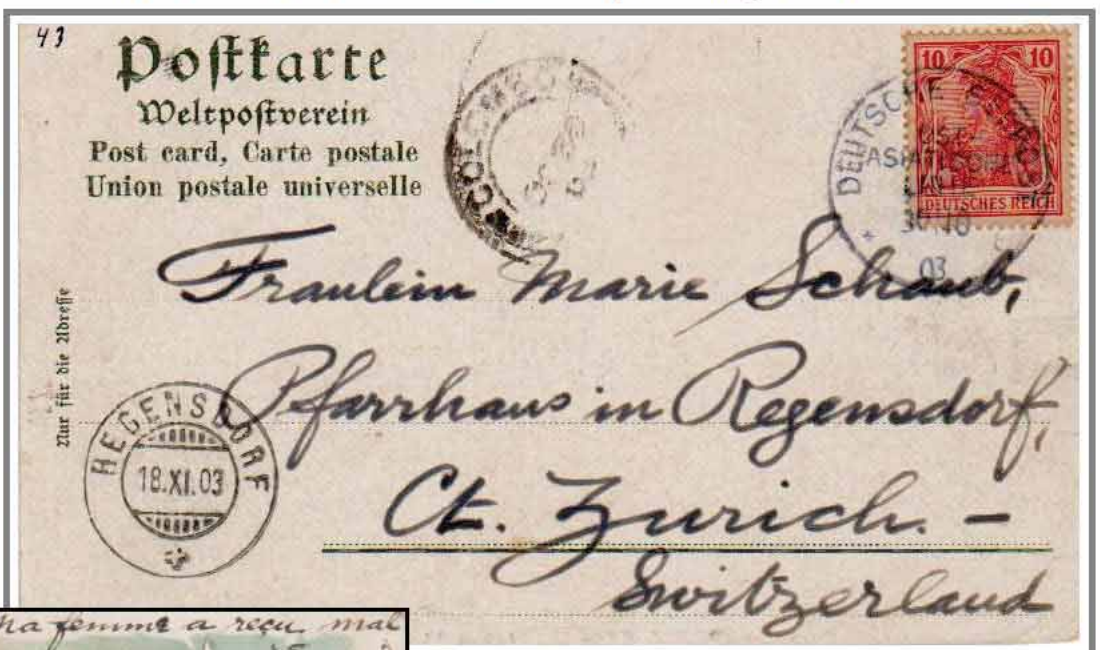 43
Postkarte
Weltpostverein
Post card, Carte postale
Union postale universelle
Nur für die Adresse
COLOMBO
10 10
DEUTSCHES REICH
DEUTSCHE SEEPOST
OST-
ASIATISCHE
LINIE
30 10
03
Fraulein Marie Schaub,
Pfarrhaus in Regensdorf,
Ct. Zurich. –
Switzerland
REGENSDORF
18.XI.03
ma femme a reçu mal